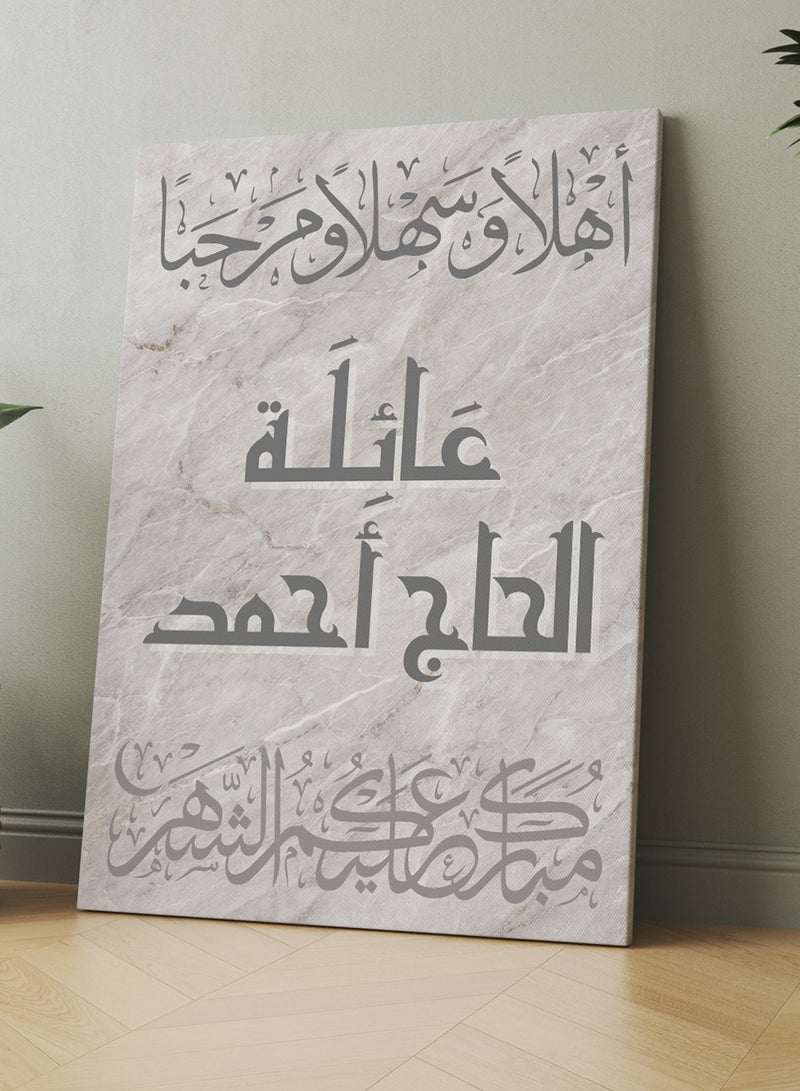 أهلاً وَسَهلاً وَمَرَحَباً
عَائِلَة
الحاج أَحمد
مُبَارَك عَلَيكُم الشَّهر